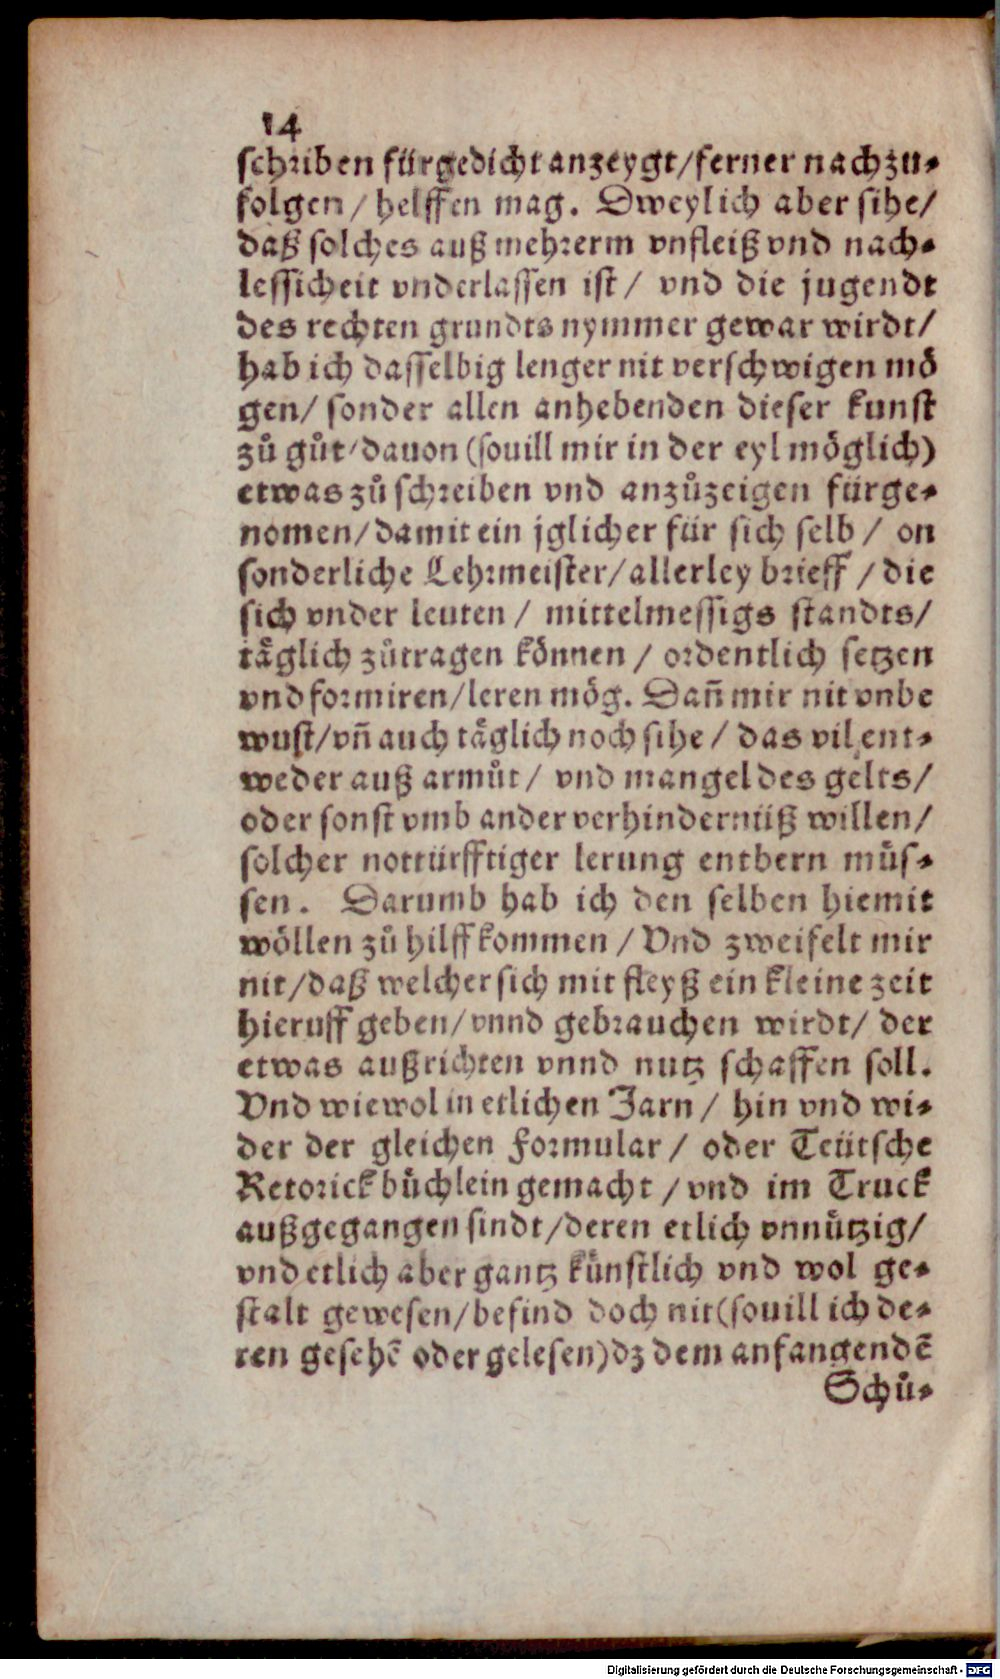 14
schriben fürgedicht anzeygt/ferner nachzu-
folgen / helffen mag. Dweylich aber sihe/
daß solches auß mehrerm vnfleiß vnd nach-
lessicheit vnderlassen ist / vnd die jugendt
des rechten grundts nymmer gewar wirdt/
hab ich dasselbig lenger nit verschwigen mö
gen/ sonder allen anhebenden dieser kunst
zů gůt/dauon (souill mir in der eyl möglich)
etwas zů schreiben vnd anzůzeigen fürge-
nomen/damit ein jglicher für sich selb / on
sonderliche Lehrmeister/allerley brieff /die
sich vnder leuten / mittelmessigs standts/
täglich zůtragen können / ordentlich setzen
vnd formiren/leren mög. Dañ mir nit vnbe
wust/vñ auch täglich noch sihe / das vil ent-
weder auß armůt / vnd mangel des gelts/
oder sonst vmb ander verhindernüß willen/
solcher nottürfftiger lerung entbern müs-
sen. Darumb hab ich den selben hiemit
wöllen zů hilff kommen /Vnd zweifelt mir
nit/daß welcher sich mit fleyß ein kleine zeit
hieruff geben/vnnd gebrauchen wirdt/ der
etwas außrichten vnnd nutz schaffen soll.
Vnd wiewol in etlichen Jarn / hin vnd wi-
der der gleichen Formular / oder Teütsche
Retorick büchlein gemacht /vnd im Truck
außgegangen sindt/deren etlich vnnützig/
vnd etlich aber gantz künstlich vnd wol ge-
stalt gewesen/befind doch nit(souill ich de-
ren gesehē oder gelesen)dz dem anfangendē
Schů-
Digitalisierung gefördert durch die Deutsche Forschungsgemeinschaft - DFG